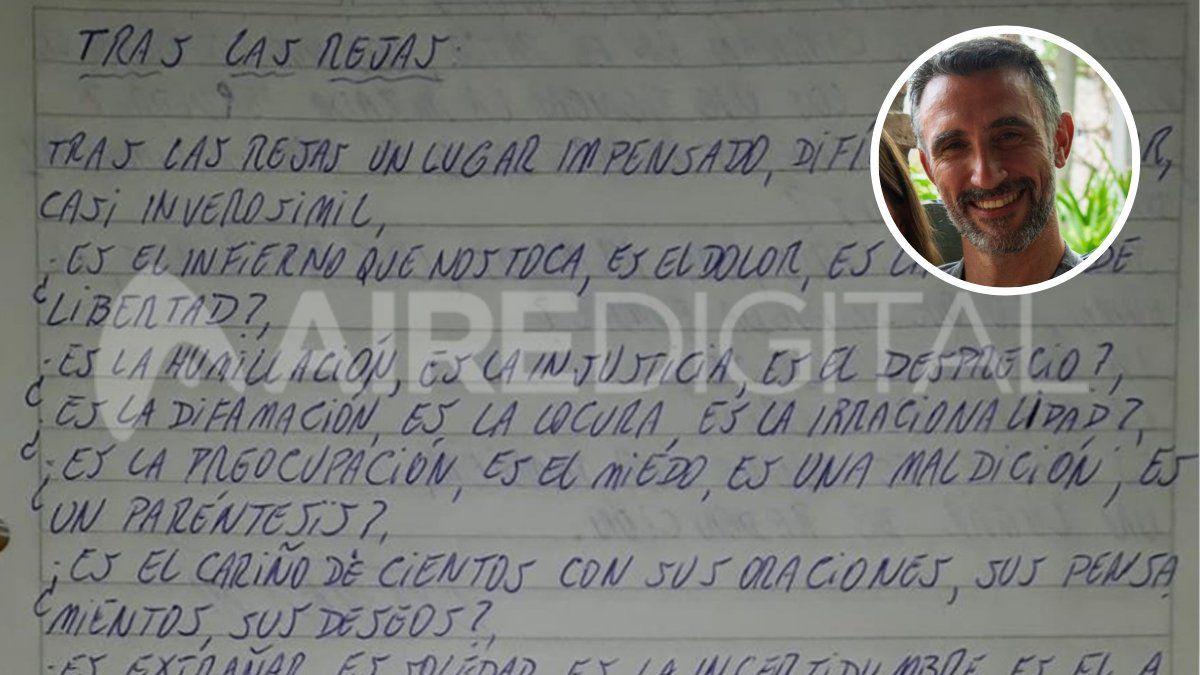 TRAS LAS REJAS:
TRAS LAS REJAS UN LUGAR IMPENSADO, DIFÍ R,
CASI INVEROSIMIL,
¿ES EL INFIERNO QUE NOS TOCA, ES EL DOLOR, ES DE
LIBERTAD?,
AIREDIGITAL
¿ES LA HUMILLACIÓN, ES LA INJUSTICIA, ES EL DESPRECIO?,
¿ES LA DIFAMACIÓN, ES LA LOCURA, ES LA IRRACIONALIDAD?,
¿ES LA PREOCUPACIÓN, ES EL MIEDO, ES UNA MALDICIÓN, ES
UN PARÉNTESIS?,
¿ES EL CARIÑO DE CIENTOS CON SUS ORACIONES, SUS PENSA
MIENTOS, SUS DESEOS?,
ES EXTRAÑAR, ES SOLEDAD, ES LA INCERTIDUMBRE, ES EL A